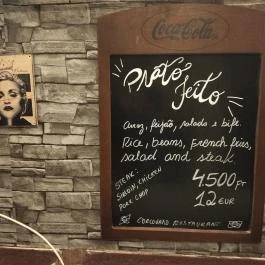 Coca-Cola
Prato
feito
Arroz, feijão, salada e bife.
Rice, beans, french fries,
salad and steak.
STEAK:
SIRLOIN, CHICKEN
PORK CHOP
4.500 FT
12 EUR
CORCOVADO RESTAURANT